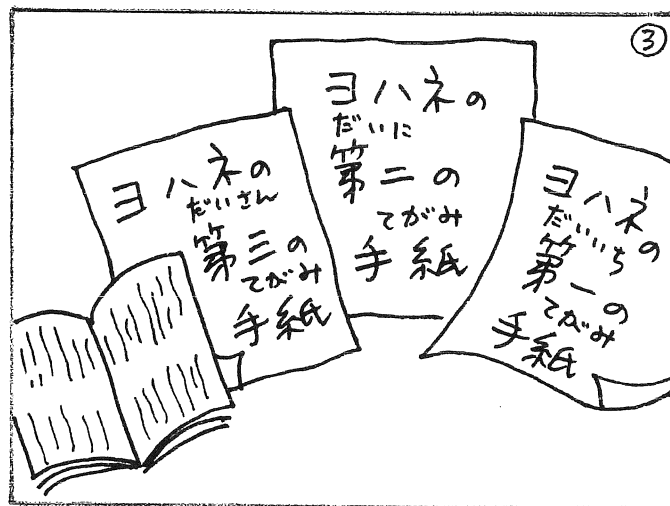 ③
ヨハネの
だいいち
第一の
てがみ
手紙
ヨハネの
だいに
第二の
てがみ
手紙
ヨハネの
だいさん
第三の
てがみ
手紙